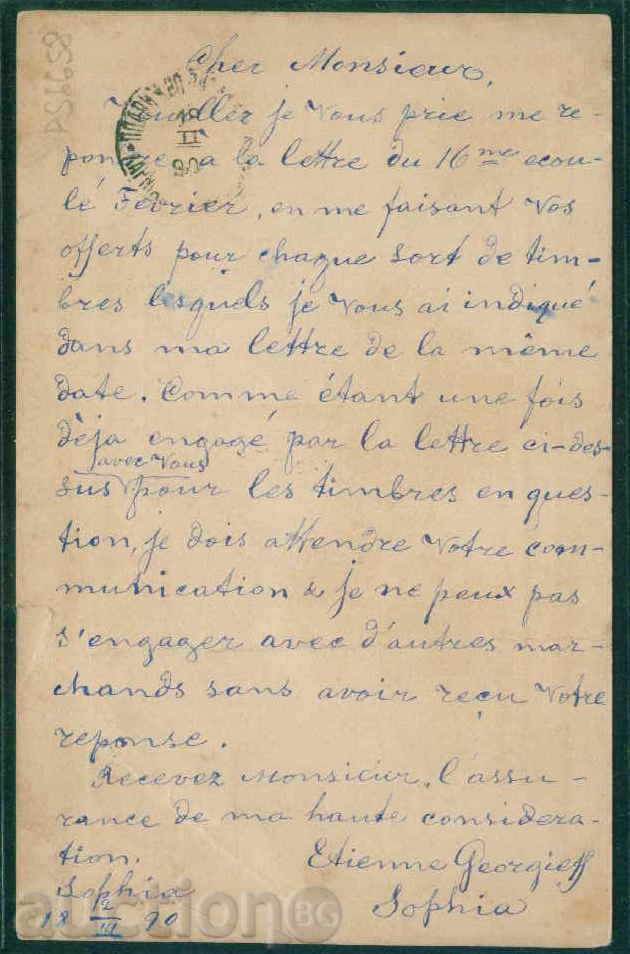 82662A
Cher Monsieur,
Veuiller je Vous prie me re-
pondre a la lettre du 16me ecou-
lé Fevrier, en me faisant Vos
offerts pour chaque sort de tim-
bres lesquels je Vous ai indiqué
dans ma lettre de la même
date. Comme étant une fois
dèja engagé par la lettre ci-des-
avec Vous
sus pour les timbres en ques-
tion, je dois attendre Votre com-
munication & je ne peux pas
s'engager avec d'autres mar-
chands sans avoir reçu Votre
reponse.
Recevez Monsieur, l'assu-
rance de ma haute considera-
tion. Etienne Georgieff
Sophia Sophia
18 2/III 90
auction BG